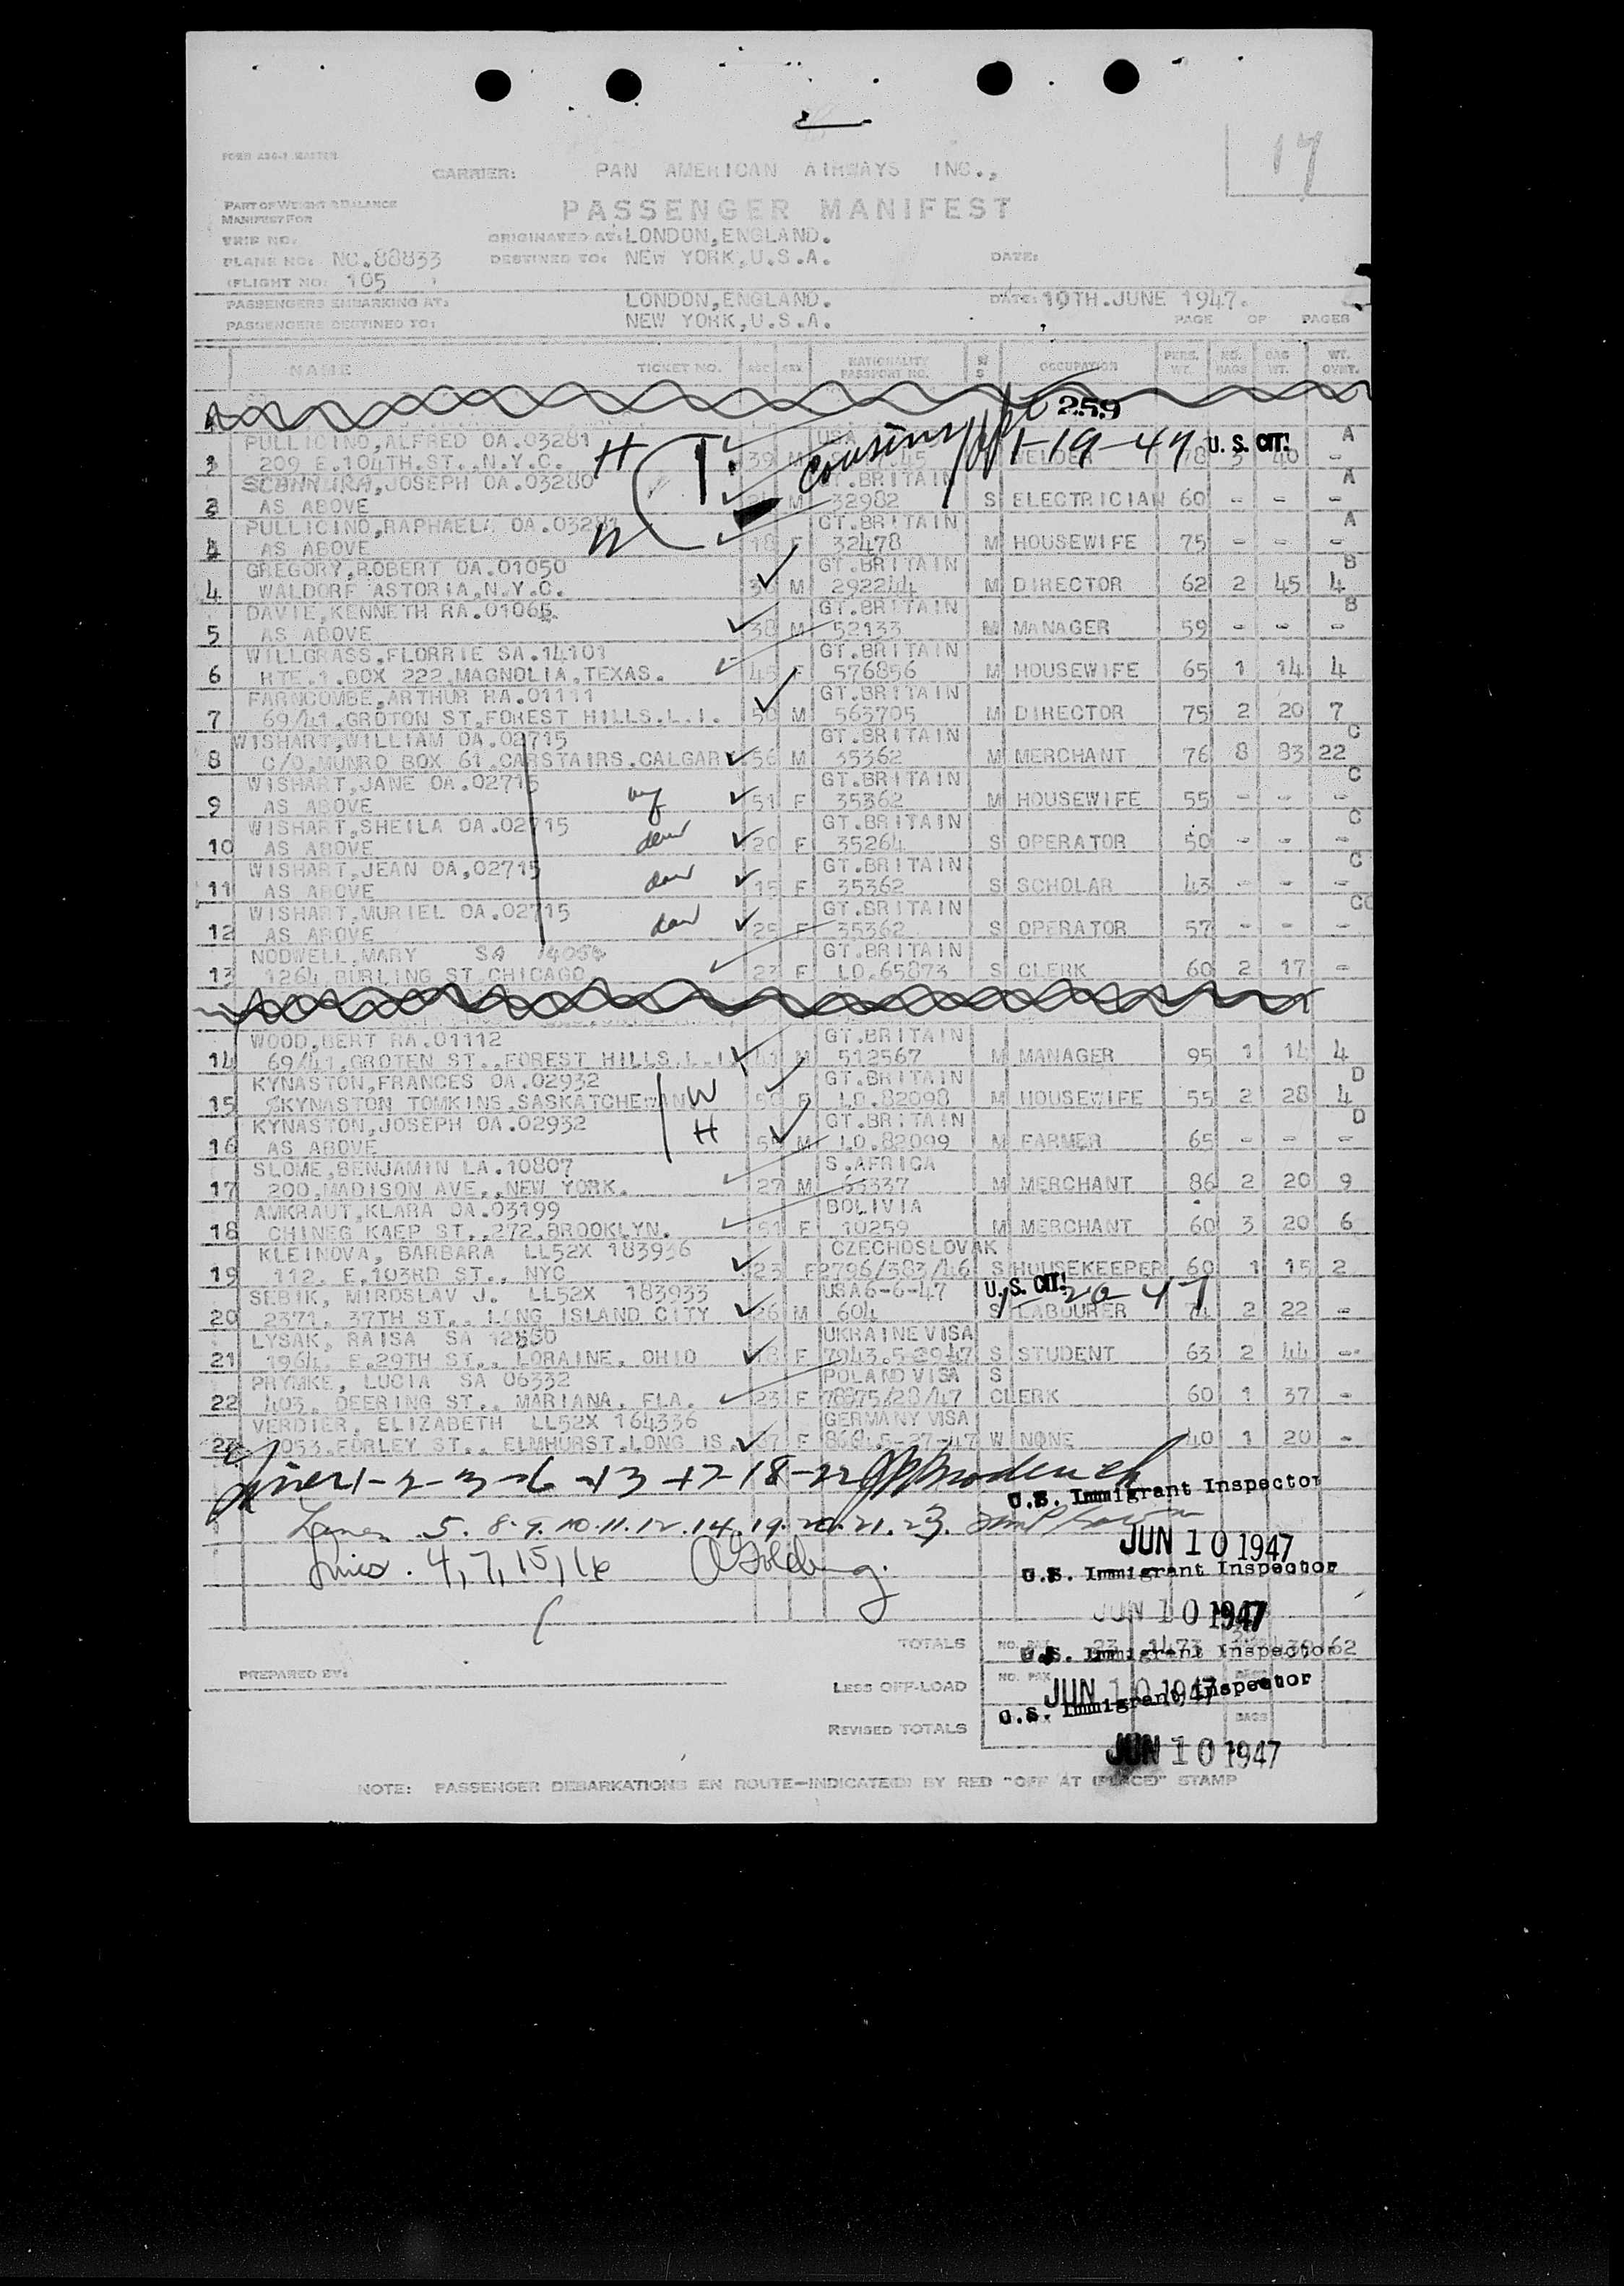 17
FORM 436-1 MASTER
CARRIER: PAN AMERICAN AIRWAYS INC.,
PART OF WEIGHT & BALANCE
MANIFEST FOR
PASSENGER MANIFEST
TRIP NO. ORIGINATED AT: LONDON,ENGLAND.
PLANE NO: NC.88833 DESTINED TO: NEW YORK,U.S.A. DATE:
(FLIGHT NO: 105 )
PASSENGERS EMBARKING AT: LONDON,ENGLAND. DATE: 10TH.JUNE 1947.
PASSENGERS DESTINED TO: NEW YORK,U.S.A. PAGE OF PAGES
NAME TICKET NO. AGE SEX NATIONALITY PASSPORT NO. M S OCCUPATION PERS. WT. NO. BAGS BAG WT. WT. OVWT.
259
PULLICINO,ALFRED OA.03281 USA A
209 E.104TH.ST.,N.Y.C. H 39 M cousins 1-19-47 WELDER 78 3 40 - U. S. CIT!
JOSEPH OA.03280 GT.BRITAIN A
AS ABOVE M 32982 S ELECTRICIAN 60 - - -
PULLICINO,RAPHAELA OA.03281 GT.BRITAIN A
AS ABOVE W 18 F 32478 M HOUSEWIFE 75 - - -
GREGORY,ROBERT OA.01050 GT.BRITAIN B
4 WALDORF ASTORIA,N.Y.C. M 292244 M DIRECTOR 62 2 45 4
DAVIE,KENNETH RA.01065 GT.BRITAIN B
5 AS ABOVE 38 M 52133 M MANAGER 59 - - -
WILLGRASS,FLORRIE SA.14101 GT.BRITAIN
6 RTE.1.BOX 222,MAGNOLIA,TEXAS. 45 F 576856 M HOUSEWIFE 65 1 14 4
FARNCOMBE,ARTHUR RA.01111 GT.BRITAIN
7 69/41,GROTON ST,FOREST HILLS.L.I. 50 M 563705 M DIRECTOR 75 2 20 7
WISHART,WILLIAM OA.02715 GT.BRITAIN C
8 C/O,MUNRO BOX 61,CARSTAIRS.CALGARY 56 M 35362 M MERCHANT 76 8 83 22
WISHART,JANE OA.02715 GT.BRITAIN C
9 AS ABOVE 51 F 35362 M HOUSEWIFE 55 - - -
WISHART,SHEILA OA.02715 GT.BRITAIN C
10 AS ABOVE dau 20 F 35264 S OPERATOR 50 - - -
WISHART,JEAN OA,02715 GT.BRITAIN C
11 AS ABOVE dau 15 F 35362 S SCHOLAR 43 - - -
WISHART,MURIEL OA.02715 GT.BRITAIN CC
12 AS ABOVE dau 25 F 35362 S OPERATOR 57 - - -
NODWELL,MARY SA 14054 GT.BRITAIN
13 1264,BURLING ST,CHICAGO. 23 F LD.65873 S CLERK 60 2 17 -
WOOD,BERT RA.01112 GT.BRITAIN
14 69/41,GROTEN ST.,FOREST HILLS.L.I. 41 M 512567 M MANAGER 95 1 14 4
KYNASTON,FRANCES OA.02932 GT.BRITAIN D
15 KYNASTON TOMKINS,SASKATCHEWAN W 50 F LD.82098 M HOUSEWIFE 55 2 28 4
KYNASTON,JOSEPH OA.02932 GT.BRITAIN D
16 AS ABOVE H 55 M LD.82099 M FARMER 65 - - -
SLOME,BENJAMIN LA.10807 S.AFRICA
17 200,MADISON AVE.,NEW YORK. 27 M 65337 M MERCHANT 86 2 20 9
AMKRAUT,KLARA OA.03199 BOLIVIA
18 CHINEG KAEP ST.,272,BROOKLYN. 51 F 10259 M MERCHANT 60 3 20 6
KLEINOVA, BARBARA LL52X 183936 CZECHOSLOVAK
19 112. E.103RD ST., NYC 23 F 2796/383/46 S HOUSEKEEPER 60 1 15 2
SEBIK, MIROSLAV J. LL52X 183933 USA6-6-47 U. S. CIT!
20 2371. 37TH ST., LONG ISLAND CITY 26 M 604 S LABOURER 74 2 22 -
LYSAK, RAISA SA 12550 UKRAINE VISA
21 1964. E.29TH ST., LORAINE, OHIO 18 F 7943.5-29-47 S STUDENT 63 2 44 -
PRYMKE, LUCIA SA 06332 POLAND VISA S
22 403. DEERING ST., MARIANA, FLA. 23 F CLERK 60 1 37 -
VERDIER, ELIZABETH LL52X 164336 GERMANY VISA
23 FORLEY ST., ELMHURST,LONG IS. F W NONE 40 1 20 -
Lines 1-2-3-6-13-17-18-22
U.S. Immigrant Inspector
Lines 5. 8. 9. 10. 11. 12. 14. 19. 20. 21. 23.
JUN 10 1947
Lines. 4, 7, 15, 16 Goldberg.
U.S. Immigrant Inspector
JUN 10 1947
TOTALS NO. PAX 23 1473 62
U.S. Immigrant Inspector
PREPARED BY:
LESS OFF-LOAD NO. PAX
JUN 10 1947
U.S. Immigrant Inspector
REVISED TOTALS BAGS
JUN 10 1947
NOTE: PASSENGER DEBARKATIONS EN ROUTE—INDICATE(D) BY RED "OFF AT (PLACE)" STAMP